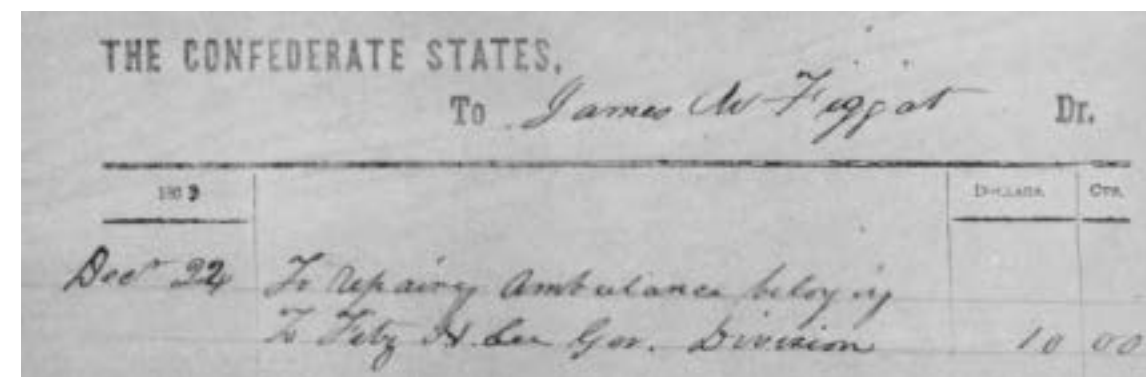 THE CONFEDERATE STATES,
To James W Figgat Dr.
1863 DOLLARS. CTS.
Decr 24 To repairing Ambulance belonging
To Fitz H. Lee Gen. Division 10 00